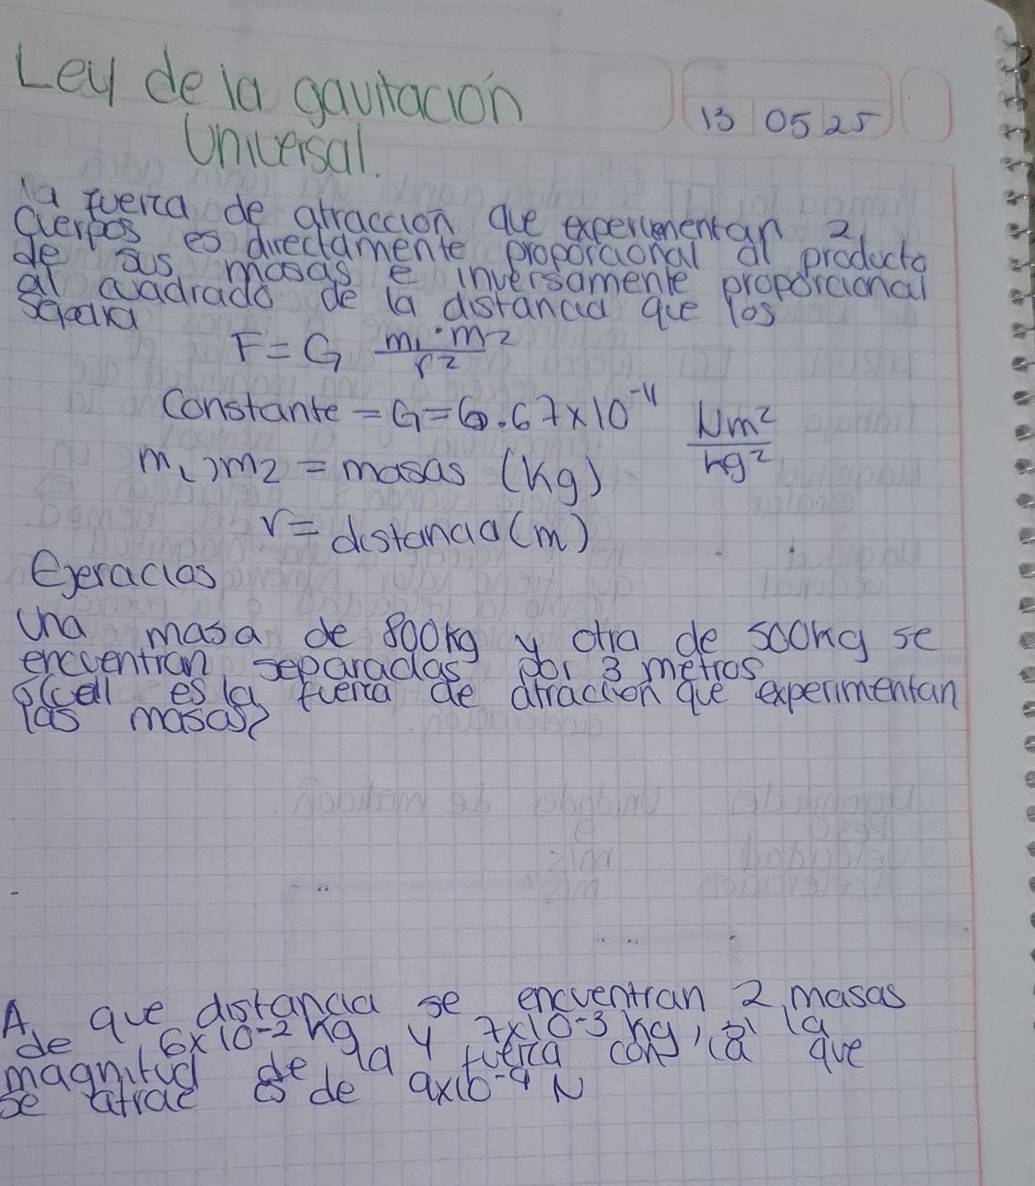 Ley de la gavitación
Universal.
13 05 25
la fuerza de atraccion que experimentan 2
Cuerpos es directamente proporcional al producto
de sus masas e inversamente proporcional
al cuadrado de la distancia que los
separa
F = G m₁·m2 / r²
Constante = G = 6.67x10⁻¹¹ Nm² / kg²
m₁, m2 = masas (kg)
r = distancia (m)
Ejercicios
Una masa de 800kg y otra de 500kg se
encuentran separadas por 3 metros
¿cual es la fuerza de atraccion que experimentan
las masas?
A que distancia se encuentran 2 masas
de 6x10⁻² kg y 7x10⁻³ kg, si la
magnitud de la fuerza con la que
se atrae es de 9x10⁻⁹ N